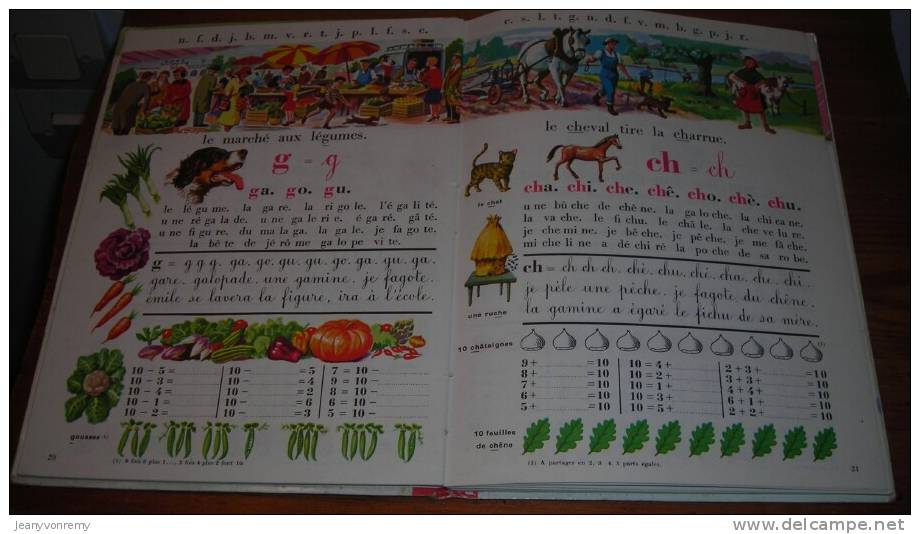 n. f. d. j. b. m. v. r. t. j. p. l. f. s. c.
le marché aux légumes.
g = g
ga. go. gu.
le lé gu me. la ga re. la ri go le. l'é ga li té.
u ne ré ga la de. u ne ga le ri e. é ga ré. gâ té.
u ne fi gu re. du ma la ga. la ga le. je fa go te.
la bê te de jé rô me ga lo pe vi te.
g = g g g. ga. go. gu. gu. go. ga. gu. ga.
gare. galopade. une gamine. je fagote.
émile se lavera la figure, ira à l'école.
10 - 5 = 10 - = 5 7 = 10 -
10 - 3 = 10 - = 4 9 = 10 -
10 - 4 = 10 - = 2 8 = 10 -
10 - 1 = 10 - = 6 6 = 10 -
10 - 2 = 10 - = 3 5 = 10 -
gousses (1)
20
c. s. l. t. g. n. d. f. v. m. b. g. p. j. r.
le cheval tire la charrue.
ch = ch
le chat
cha. chi. che. chê. cho. chè. chu.
u ne bû che de chê ne. la ga lo che. la chi ca ne.
la va che. le fi chu. le châ le. la che ve lu re.
je che mi ne. je bê che. je pê che. je me fâ che.
mi che li ne a dé chi ré la po che de sa ro be.
ch = ch ch ch. chè. chu. ché. cha. che. chi.
je pèle une pêche. je fagote du chêne.
la gamine a égaré le fichu de sa mère.
une ruche
10 châtaignes
(1)
9 + = 10 10 = 4 + 2 + 3 + = 10
8 + = 10 10 = 2 + 3 + 3 + = 10
7 + = 10 10 = 1 + 4 + 4 + = 10
6 + = 10 10 = 3 + 6 + 1 + = 10
5 + = 10 10 = 5 + 2 + 2 + = 10
10 feuilles
de chêne
(1) A partager en 2, 3, 4, 5 parts égales.
21
jeanyvonremy
delcampe.net